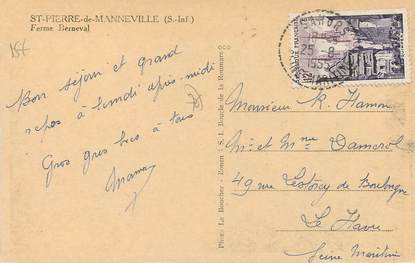 ST-PIERRE-de-MANNEVILLE (S.-Inf.)
Ferme Derneval
Bon séjour et grand
repos à lundi après-midi
Gros gros bécs à tous
Maman
Photo Le Boucher - Rouen - S. I. Boucle de la Roumare
25 - 8
1955
Monsieur R. Hamon
Mr et Mme Damerol
49 rue de Boulogne
Le Havre
Seine Maritime